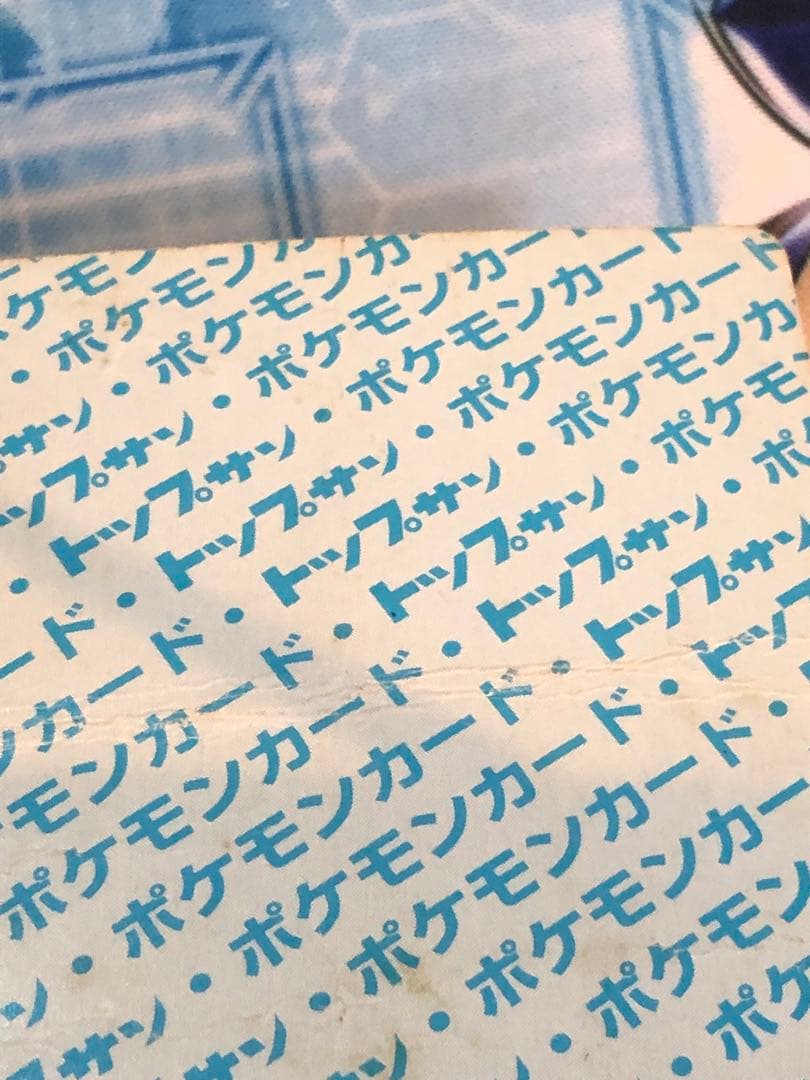 ケモン
・ポケモンカ
サン・ポケモンカ
ップサン・ポケモンカー
・トップサン・ポケモンカード
ード・トップサン・ポケモンカード
ンカード・トップサン・ポケモンカ
モンカード・トップサン・ポケモ
ポケモンカード・トップサン・ポ
ン・ポケモンカード・トップサン
サン・ポケモンカード・トップ
プサン・ポケモンカード・
ン・ポケモンカー
・ポケモン
・ポケ